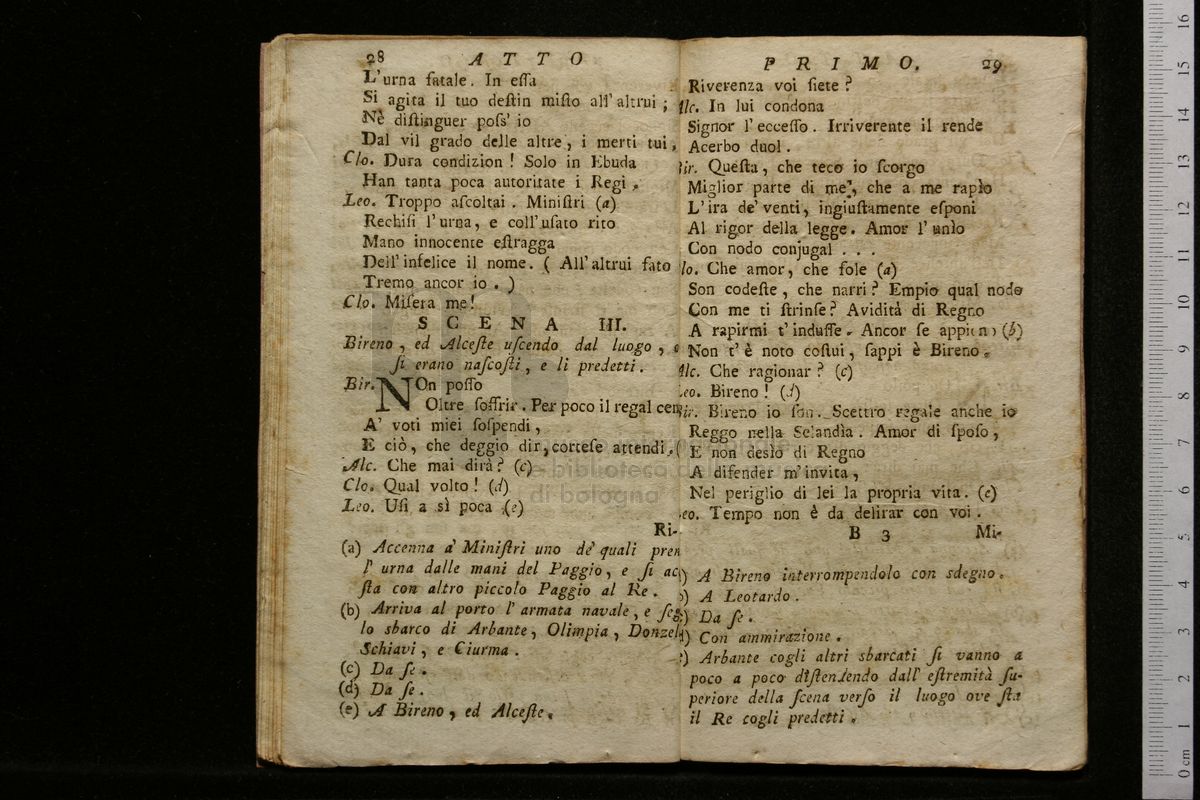 28 ATTO
L'urna fatale. In eſſa
Si agita il tuo deſtin miſto all'altrui;
Nè diſtinguer poſs' io
Dal vil grado delle altre, i merti tui.
Clo. Dura condizion! Solo in Ebuda
Han tanta poca autoritate i Regi.
Leo. Troppo aſcoltai. Miniſtri (a)
Rechiſi l'urna, e coll'uſato rito
Mano innocente eſtragga
Dell'infelice il nome. (All'altrui fato
Tremo ancor io.)
Clo. Miſera me!
SCENA III.
Bireno, ed Alceſte uſcendo dal luogo,
ſi erano naſcoſti, e li predetti.
Bir. NOn poſſo
Oltre ſoffrir. Per poco il regal
A' voti miei ſoſpendi,
E ciò, che deggio dir, corteſe attendi.
Alc. Che mai dirà? (c)
Clo. Qual volto! (d)
Leo. Uſi a sì poca (e)
Ri-
(a) Accenna a' Miniſtri uno de' quali
l'urna dalle mani del Paggio, e ſi
ſta con altro piccolo Paggio al Re.
(b) Arriva al porto l'armata navale, e
lo sbarco di Arbante, Olimpia,
Schiavi, e Ciurma.
(c) Da ſe.
(d) Da ſe.
(e) A Bireno, ed Alceſte.
PRIMO. 29
Riverenza voi ſiete?
Alc. In lui condona
Signor l'ecceſſo. Irriverente il rende
Acerbo duol.
Bir. Queſta, che teco io ſcorgo
Miglior parte di me, che a me rapìo
L'ira de' venti, ingiuſtamente eſponi
Al rigor della legge. Amor l'unìo
Con nodo conjugal . . .
Clo. Che amor, che fole (a)
Son codeſte, che narri? Empio qual nodo
Con me ti ſtrinſe? Avidità di Regno
A rapirmi t'induſſe. Ancor ſe appieno (b)
Non t'è noto coſtui, ſappi è Bireno.
Alc. Che ragionar? (c)
Leo. Bireno! (d)
Bir. Bireno io ſon. Scettro regale anche io
Reggo nella Selandìa. Amor di ſpoſo,
E non desìo di Regno
A difender m'invita,
Nel periglio di lei la propria vita. (e)
Leo. Tempo non è da delirar con voi.
B 3 Mi-
(a) A Bireno interrompendolo con sdegno.
(b) A Leotardo.
(c) Da ſe.
(d) Con ammirazione.
(e) Arbante cogli altri sbarcati ſi vanno a
poco a poco diſtendendo dall' eſtremità ſu-
periore della ſcena verſo il luogo ove ſta
il Re cogli predetti.